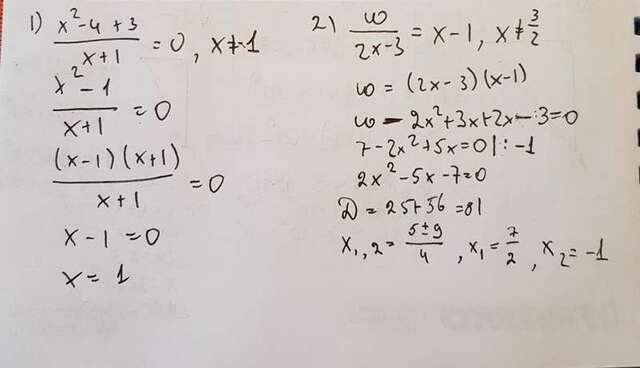 1) (x²-4+3)/(x+1) = 0, x≠-1
(x²-1)/(x+1) = 0
((x-1)(x+1))/(x+1) = 0
x-1=0
x=1
2) 10/(2x-3) = x-1, x≠3/2
10 = (2x-3)(x-1)
10-2x²+3x+2x-3=0
7-2x²+5x=0 |:-1
2x²-5x-7=0
D=25+56=81
x₁,₂ = (5±9)/4, x₁=7/2, x₂=-1